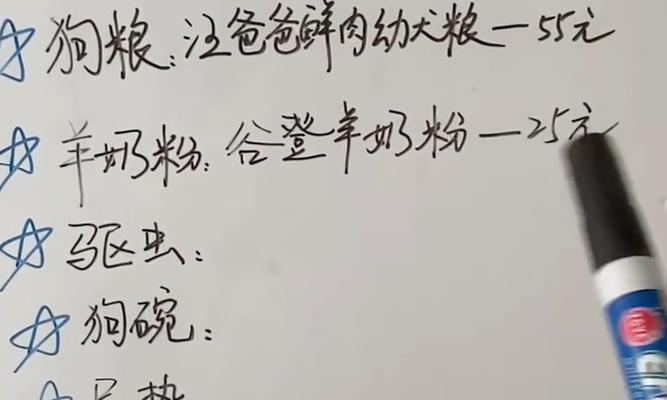 狗粮:汪爸爸鲜肉幼犬粮—55元
羊奶粉:谷登羊奶粉—25元
驱虫:
狗碗: